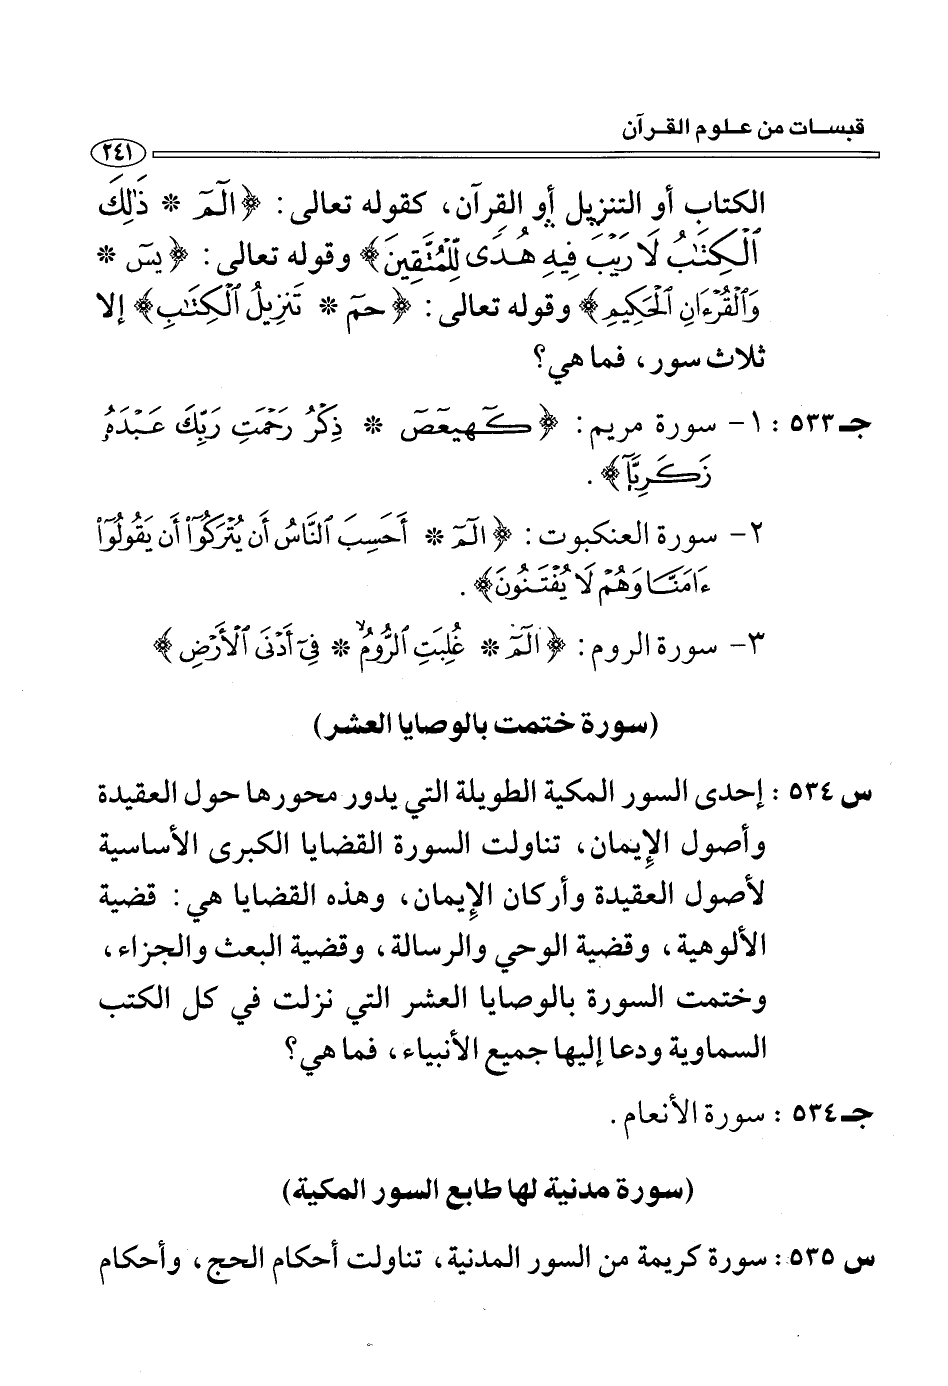 قبسات من علوم القرآن
٢٤١
الكتاب أو التنزيل أو القرآن، كقوله تعالى: ﴿الٓمٓ * ذَٰلِكَ
ٱلْكِتَٰبُ لَا رَيْبَ فِيهِ هُدًى لِّلْمُتَّقِينَ﴾ وقوله تعالى: ﴿يسٓ *
وَٱلْقُرْءَانِ ٱلْحَكِيمِ﴾ وقوله تعالى: ﴿حمٓ * تَنزِيلُ ٱلْكِتَٰبِ﴾ إلا
ثلاث سور، فما هي؟
جـ٥٣٣: ١- سورة مريم: ﴿كٓهيعٓصٓ * ذِكْرُ رَحْمَتِ رَبِّكَ عَبْدَهُۥ
زَكَرِيَّآ﴾.
٢- سورة العنكبوت: ﴿الٓمٓ * أَحَسِبَ ٱلنَّاسُ أَن يُتْرَكُوٓا۟ أَن يَقُولُوٓا۟
ءَامَنَّا وَهُمْ لَا يُفْتَنُونَ﴾.
٣- سورة الروم: ﴿الٓمٓ * غُلِبَتِ ٱلرُّومُ * فِىٓ أَدْنَى ٱلْأَرْضِ﴾
(سورة ختمت بالوصايا العشر)
س ٥٣٤: إحدى السور المكية الطويلة التي يدور محورها حول العقيدة
وأصول الإيمان، تناولت السورة القضايا الكبرى الأساسية
لأصول العقيدة وأركان الإيمان، وهذه القضايا هي: قضية
الألوهية، وقضية الوحي والرسالة، وقضية البعث والجزاء،
وختمت السورة بالوصايا العشر التي نزلت في كل الكتب
السماوية ودعا إليها جميع الأنبياء، فما هي؟
جـ٥٣٤: سورة الأنعام.
(سورة مدنية لها طابع السور المكية)
س ٥٣٥: سورة كريمة من السور المدنية، تناولت أحكام الحج، وأحكام